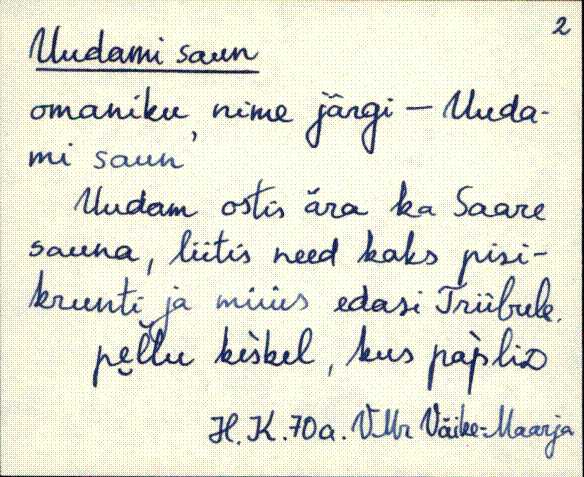 2
Uudami saun
omaniku nime järgi — Uuda-
mi saun'
Uudam ostis ära ka Saare
sauna, liitis need kaks pisi-
krunti ja müüs edasi Triibule.
keskel, kus
H. K. 70 a. VMr Väike-Maarja